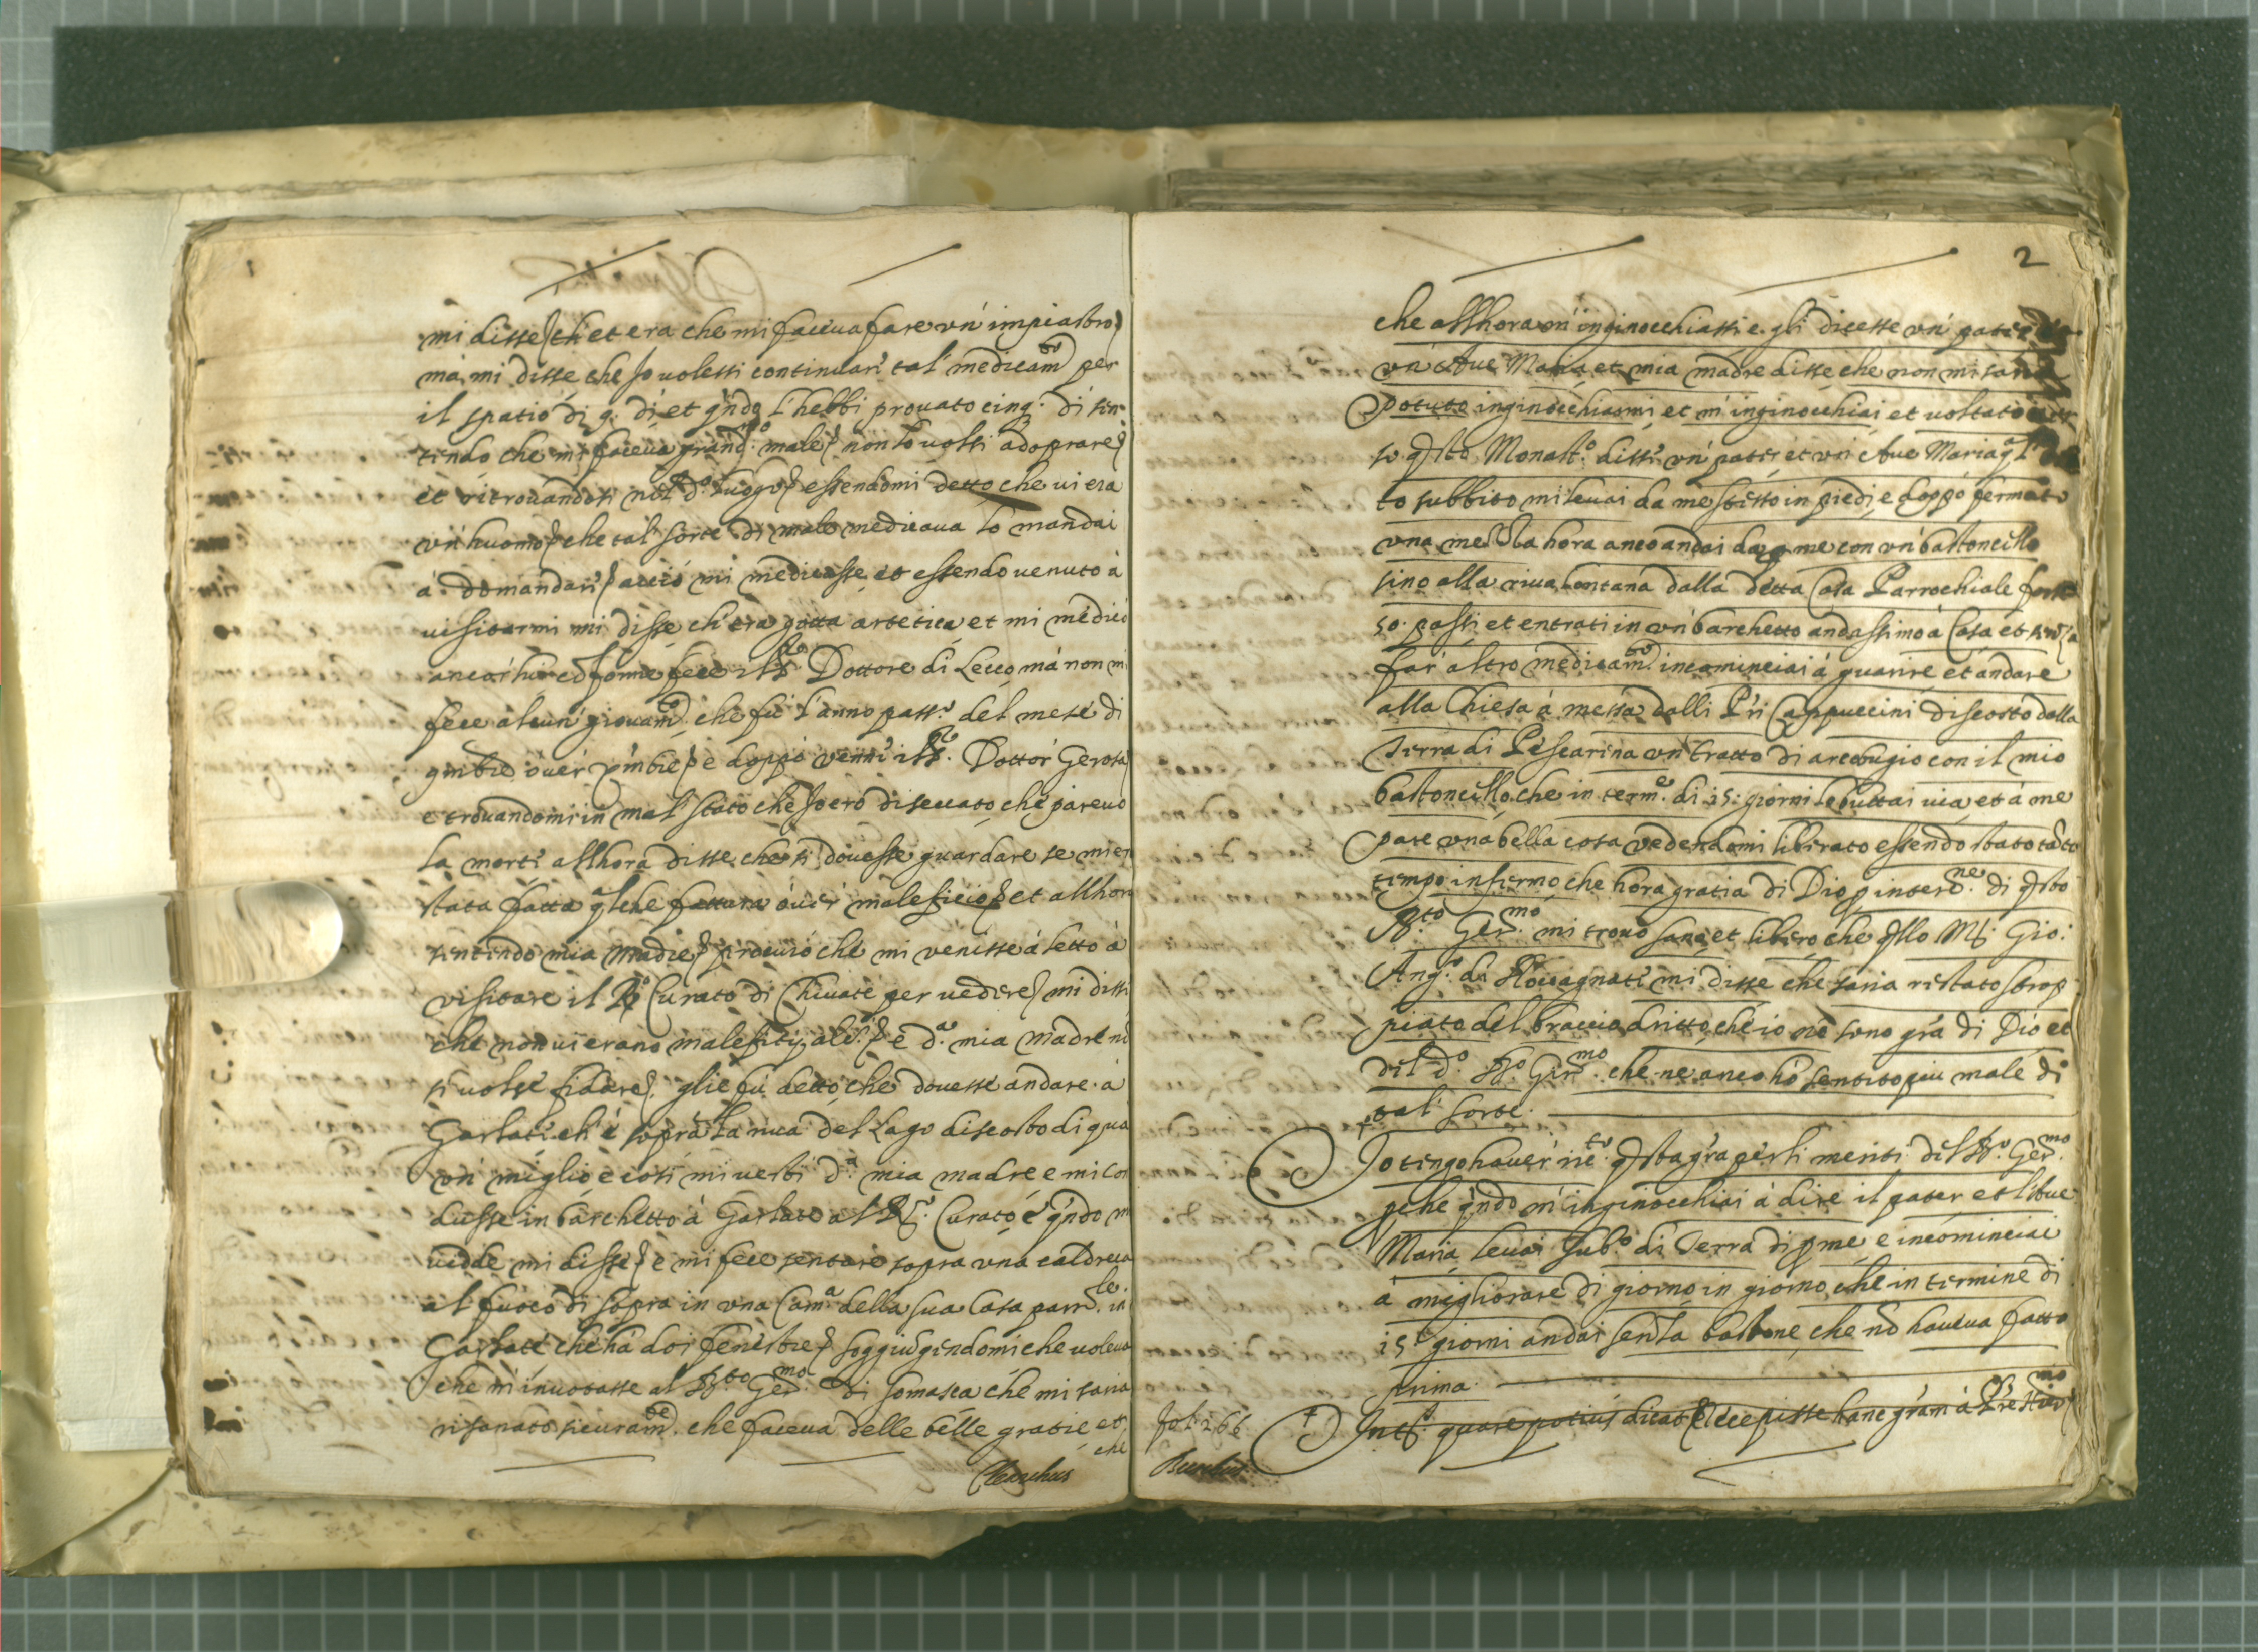 mi disse ch' et era che mi faceva fare un' impiastro
má mi disse che Jo volessi continuar' tal' medicam.to per
il spatio di 9. dì et q'ndo l'hebbi provato cinq. dì sen
tendo che mi faceva grand.mo male non lo volsi adoprare
et ritrovandosi nel d.o luogo essendomi detto che vi era
un' huomo che tal' sorte di male medicava lo mandai
á domandar' acció mi medicasse et essendo venuto á
visitarmi mi disse ch' era gotta artetica et mi medicó
ancor' lui conforme fece il S.r Dottore di Lecco má non mi
fece alcun' giovam.to che fú l'anno pass.o del mese di
9mbre over' Xmbre e doppó venne il S.r Dottor' Gerosa
e trovandomi in mal' stato che Jo eró diseccato che parevo
la morte allhora disse che si dovesse guardare se mi er
stata fatta q'lche fattura over' maleficio et allhora
sentendo mia madre procuró che mi venisse á letto á
visitare il R. Curato di Chivate per vedere mi disse
che non vi erano malefitij ale. e d.a mia madre no
si volse fidare. glie fú detto che dovesse andare á
Garlate ch' é sopra la riva del Lago discosto di qua
un' miglio e cosí mi vestí d.a mia madre e mi con
dusse in barchetto á Garlate al R. Curato e q'ndo m
vidde mi disse e mi fece sentare sopra una cadreca
al fuoco di sopra in una Cam.a della sua Casa parro.le in
Garlate che há doi fenestre soggiungendomi che voleva
che m'invotasse al B.to Ger.mo di Somasca che mi saria
risanato sicuram.te che faceva delle belle gratie et
che
2
che allhora m' inginocchiassi e gli dicesse un' pater
un' Ave Maria et mia madre disse che non mi saria
potuto inginocchiarmi et m' inginocchiai et voltato
so q'sto Monast.o dissi un' pater et un' Ave Maria
to subbito mi levai da me stesso in piedi e doppó fermato
una mezza hora anco andai da p me con un' bastoncello
sino alla riva lontana dalla detta Casa Parrochiale forse
50. passi et entrati in un' barchetto andassimo á Casa et senza
far' altro medicam.to incominciai á guarire et andare
alla Chiesa á messa dalli P'ri Cappuccini discosto dalla
Terra di Pescarina un' tratto di arcobugio con il mio
bastoncello che in term.e di 15. giorni lo buttai via et á me
pare una bella cosa vedendomi liberato essendo stato tanto
tempo infermo che hora gratia di Dio p interc.ne di q'sto
B.to Ger.mo mi trovo sano et libero che q'llo M. Gio:
Ang.o di Rovagnate mi disse che saria restato strop
piato del braccio dritto, che io ne sono gr'a di Dio et
del d.o B.o Ger.mo che ne anco hó sentito piu male di
tal' sorte.
Jo tengo haver' rice.to q'sta gr'a per li meriti del B.o Ger.mo
p'che q'ndo m' inginocchiai á dire il pater et l'Ave
Maria levai sub.o di Terra di p me e incominciai
á migliorare di giorno in giorno che in termine di
15. giorni andai senza bastone che nó haveva fatto
prima.
Int. quare potius dicat recepisse hanc gr'am á
fol. 266